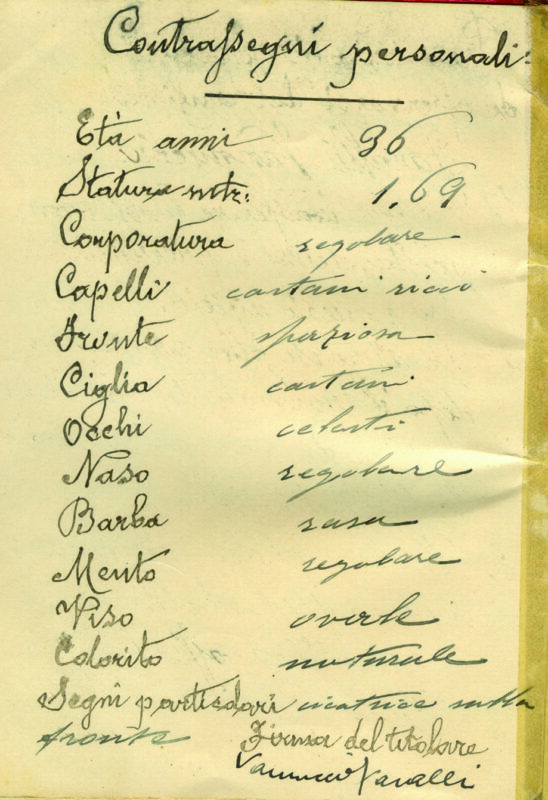 Contrassegni personali:
Età anni 36
Statura mtr: 1.69
Corporatura regolare
Capelli castani ricci
Fronte spaziosa
Ciglia castani
Occhi celesti
Naso regolare
Barba rasa
Mento regolare
Viso ovale
Colorito naturale
Segni particolari cicatrice sulla
fronte Firma del titolare